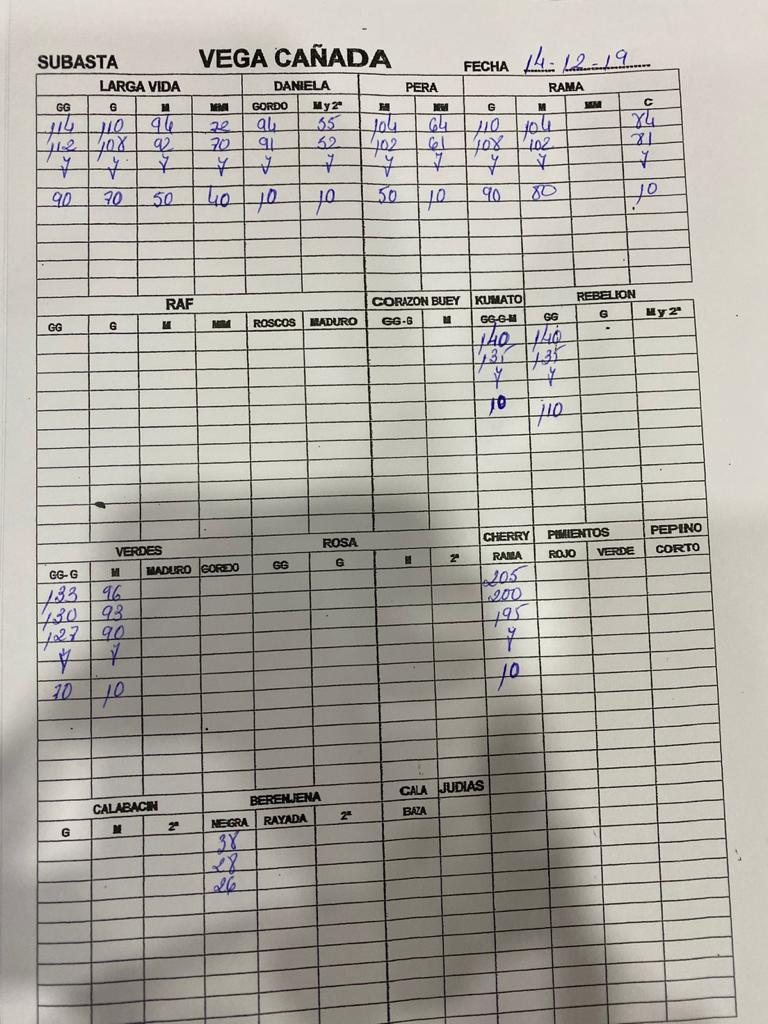 SUBASTA VEGA CAÑADA FECHA 14-12-19
LARGA VIDA DANIELA PERA RAMA
GG G M MM GORDO M y 2ª M MM G M MM C
114 110 94 72 94 55 104 64 110 104 84
112 108 92 70 91 52 102 61 108 102 81
y y y y y y y y y y y
90 70 50 40 10 10 50 10 90 80 10
RAF CORAZON BUEY KUMATO REBELION
GG G M MM ROSCOS MADURO GG-G M GG-G-M GG G M y 2ª
140 140
135 135
y y
10 110
VERDES ROSA CHERRY PIMIENTOS PEPINO
GG-G M MADURO GORDO GG G M 2ª RAMA ROJO VERDE CORTO
133 96 205
130 93 200
127 90 195
y y y
70 10 10
CALABACIN BERENJENA CALA JUDIAS
G M 2ª NEGRA RAYADA 2ª BAZA
38
28
26